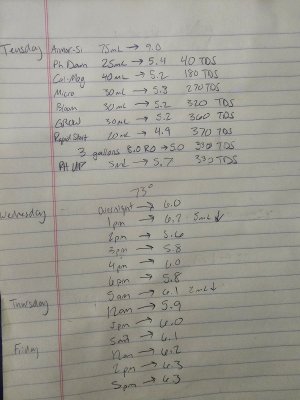 Tuesday Armor-Si 75mL → 9.0
Ph Down 25mL → 5.4 40 TDS
Cal-Mag 40mL → 5.2 180 TDS
Micro 30mL → 5.3 270 TDS
Bloom 30mL → 5.2 320 TDS
GROW 30mL → 5.2 360 TDS
Rapid Start 20mL → 4.9 370 TDS
3 gallons 8.0 RO → 5.0 330 TDS
PH UP 5mL → 5.7 330 TDS
73°
Wednesday overnight → 6.0
1pm → 6.2 5mL ↓
2pm → 5.6
3pm → 5.8
4pm → 6.0
6pm → 5.8
Thursday 5am → 6.1 2mL ↓
12am → 5.9
5pm → 6.0
Friday → 6.1
12am → 6.2
2pm → 6.3
5pm → 6.3